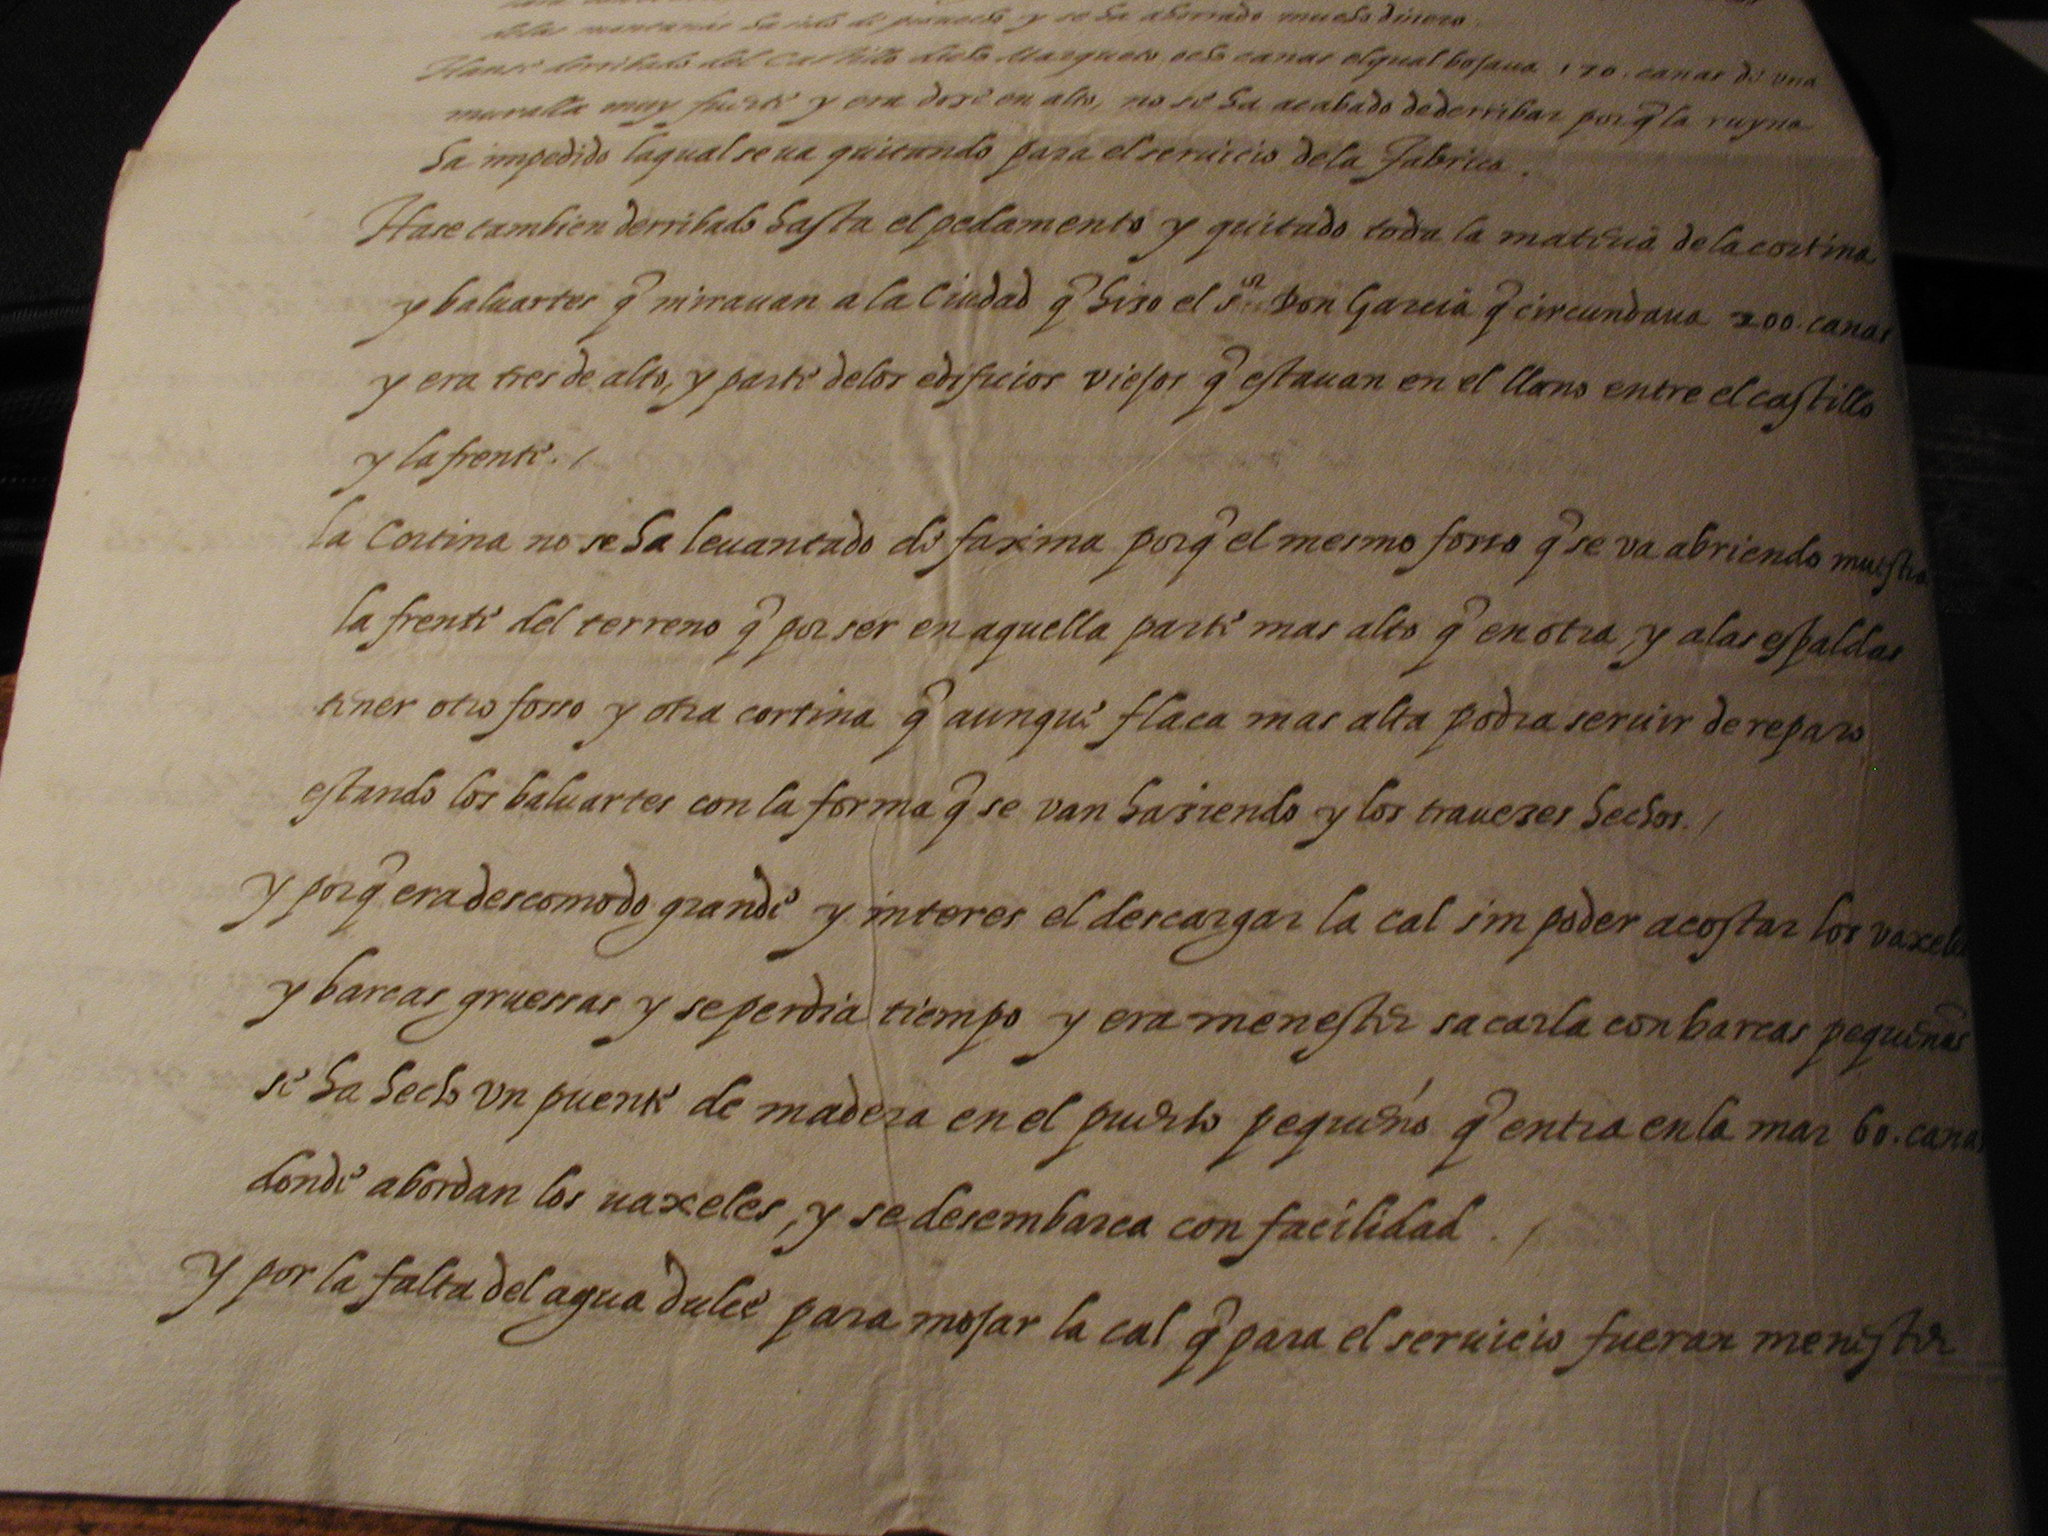 ha sido de prouecho y se ha ahorrado mucho dinero.
derribado del Castillo ocho canas el qual bojaua 170. canas de vna
muralla muy fuerte y era doze en alto, no se ha acabado de derribar porq̃ la ruyna
ha impedido la qual se va quitando para el seruicio de la Fabrica.
Hase tambien derribado hasta el pedamento y quitado toda la materia de la cortina
y baluartes q̃ mirauan a la Ciudad q̃ hizo el sᵒʳ Don Garcia q̃ circundaua 200. canas
y era tres de alto, y parte de los edificios viejos q̃ estauan en el llano entre el castillo
y la frente. /
la Cortina no se ha leuantado de faxina porq̃ el mesmo fosso q̃ se va abriendo muestra
la frente del terreno q̃ por ser en aquella parte mas alto q̃ en otra, y a las espaldas
tener otro fosso y otra cortina q̃ aunque flaca mas alta podra seruir de reparo
estando los baluartes con la forma q̃ se van haziendo y los trauezes hechos. /
y porq̃ era descomodo grande y interes el descargar la cal sin poder acostar los vaxeles
y barcas gruessas y se perdia tiempo y era menester sacarla con barcas pequeñas
se ha hecho vn puente de madera en el puerto pequeño q̃ entra en la mar 60. canas
donde abordan los uaxeles, y se desembarca con facilidad. /
y por la falta del agua dulce para mojar la cal q̃ para el seruicio fueran menester